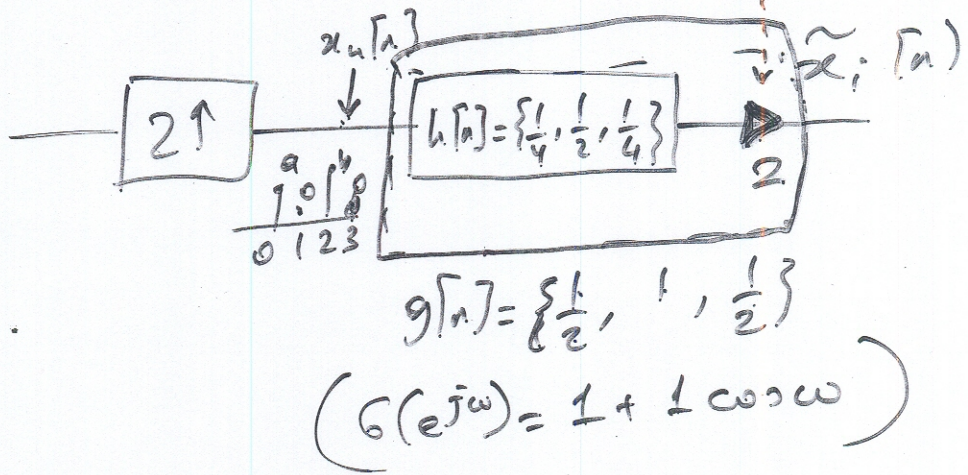 x_u[n]
x̃_i [n]
2↑
h[n]={1/4, 1/2, 1/4}
2
a 0 b 0
0 1 2 3
g[n]={1/2, 1, 1/2}
(G(e^{jω})= 1 + 1 cosω)